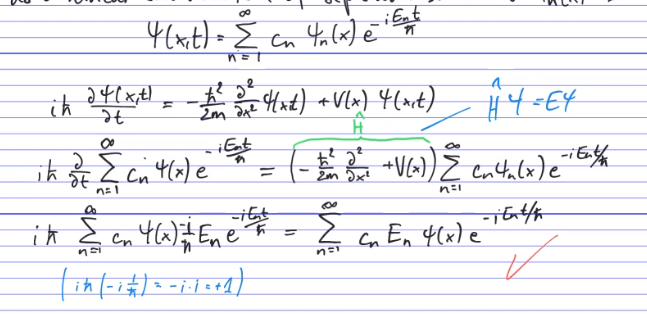 Ψ(x,t) = ∑_{n=1}^{∞} cn Ψn(x) e^{-iEnt/ħ}
iħ ∂Ψ(x,t)/∂t = -ħ²/2m ∂²/∂x² Ψ(x,t) + V(x) Ψ(x,t)
Ĥ Ψ = EΨ
Ĥ
iħ ∂/∂t ∑_{n=1}^{∞} cn Ψ(x) e^{-iEnt/ħ} = (-ħ²/2m ∂²/∂x² + V(x)) ∑_{n=1}^{∞} cn Ψn(x) e^{-iEnt/ħ}
iħ ∑_{n=1}^{∞} cn Ψ(x) -i/ħ En e^{-iEnt/ħ} = ∑_{n=1}^{∞} cn En Ψ(x) e^{-iEnt/ħ}
(iħ(-i 1/ħ) = -i·i = +1)